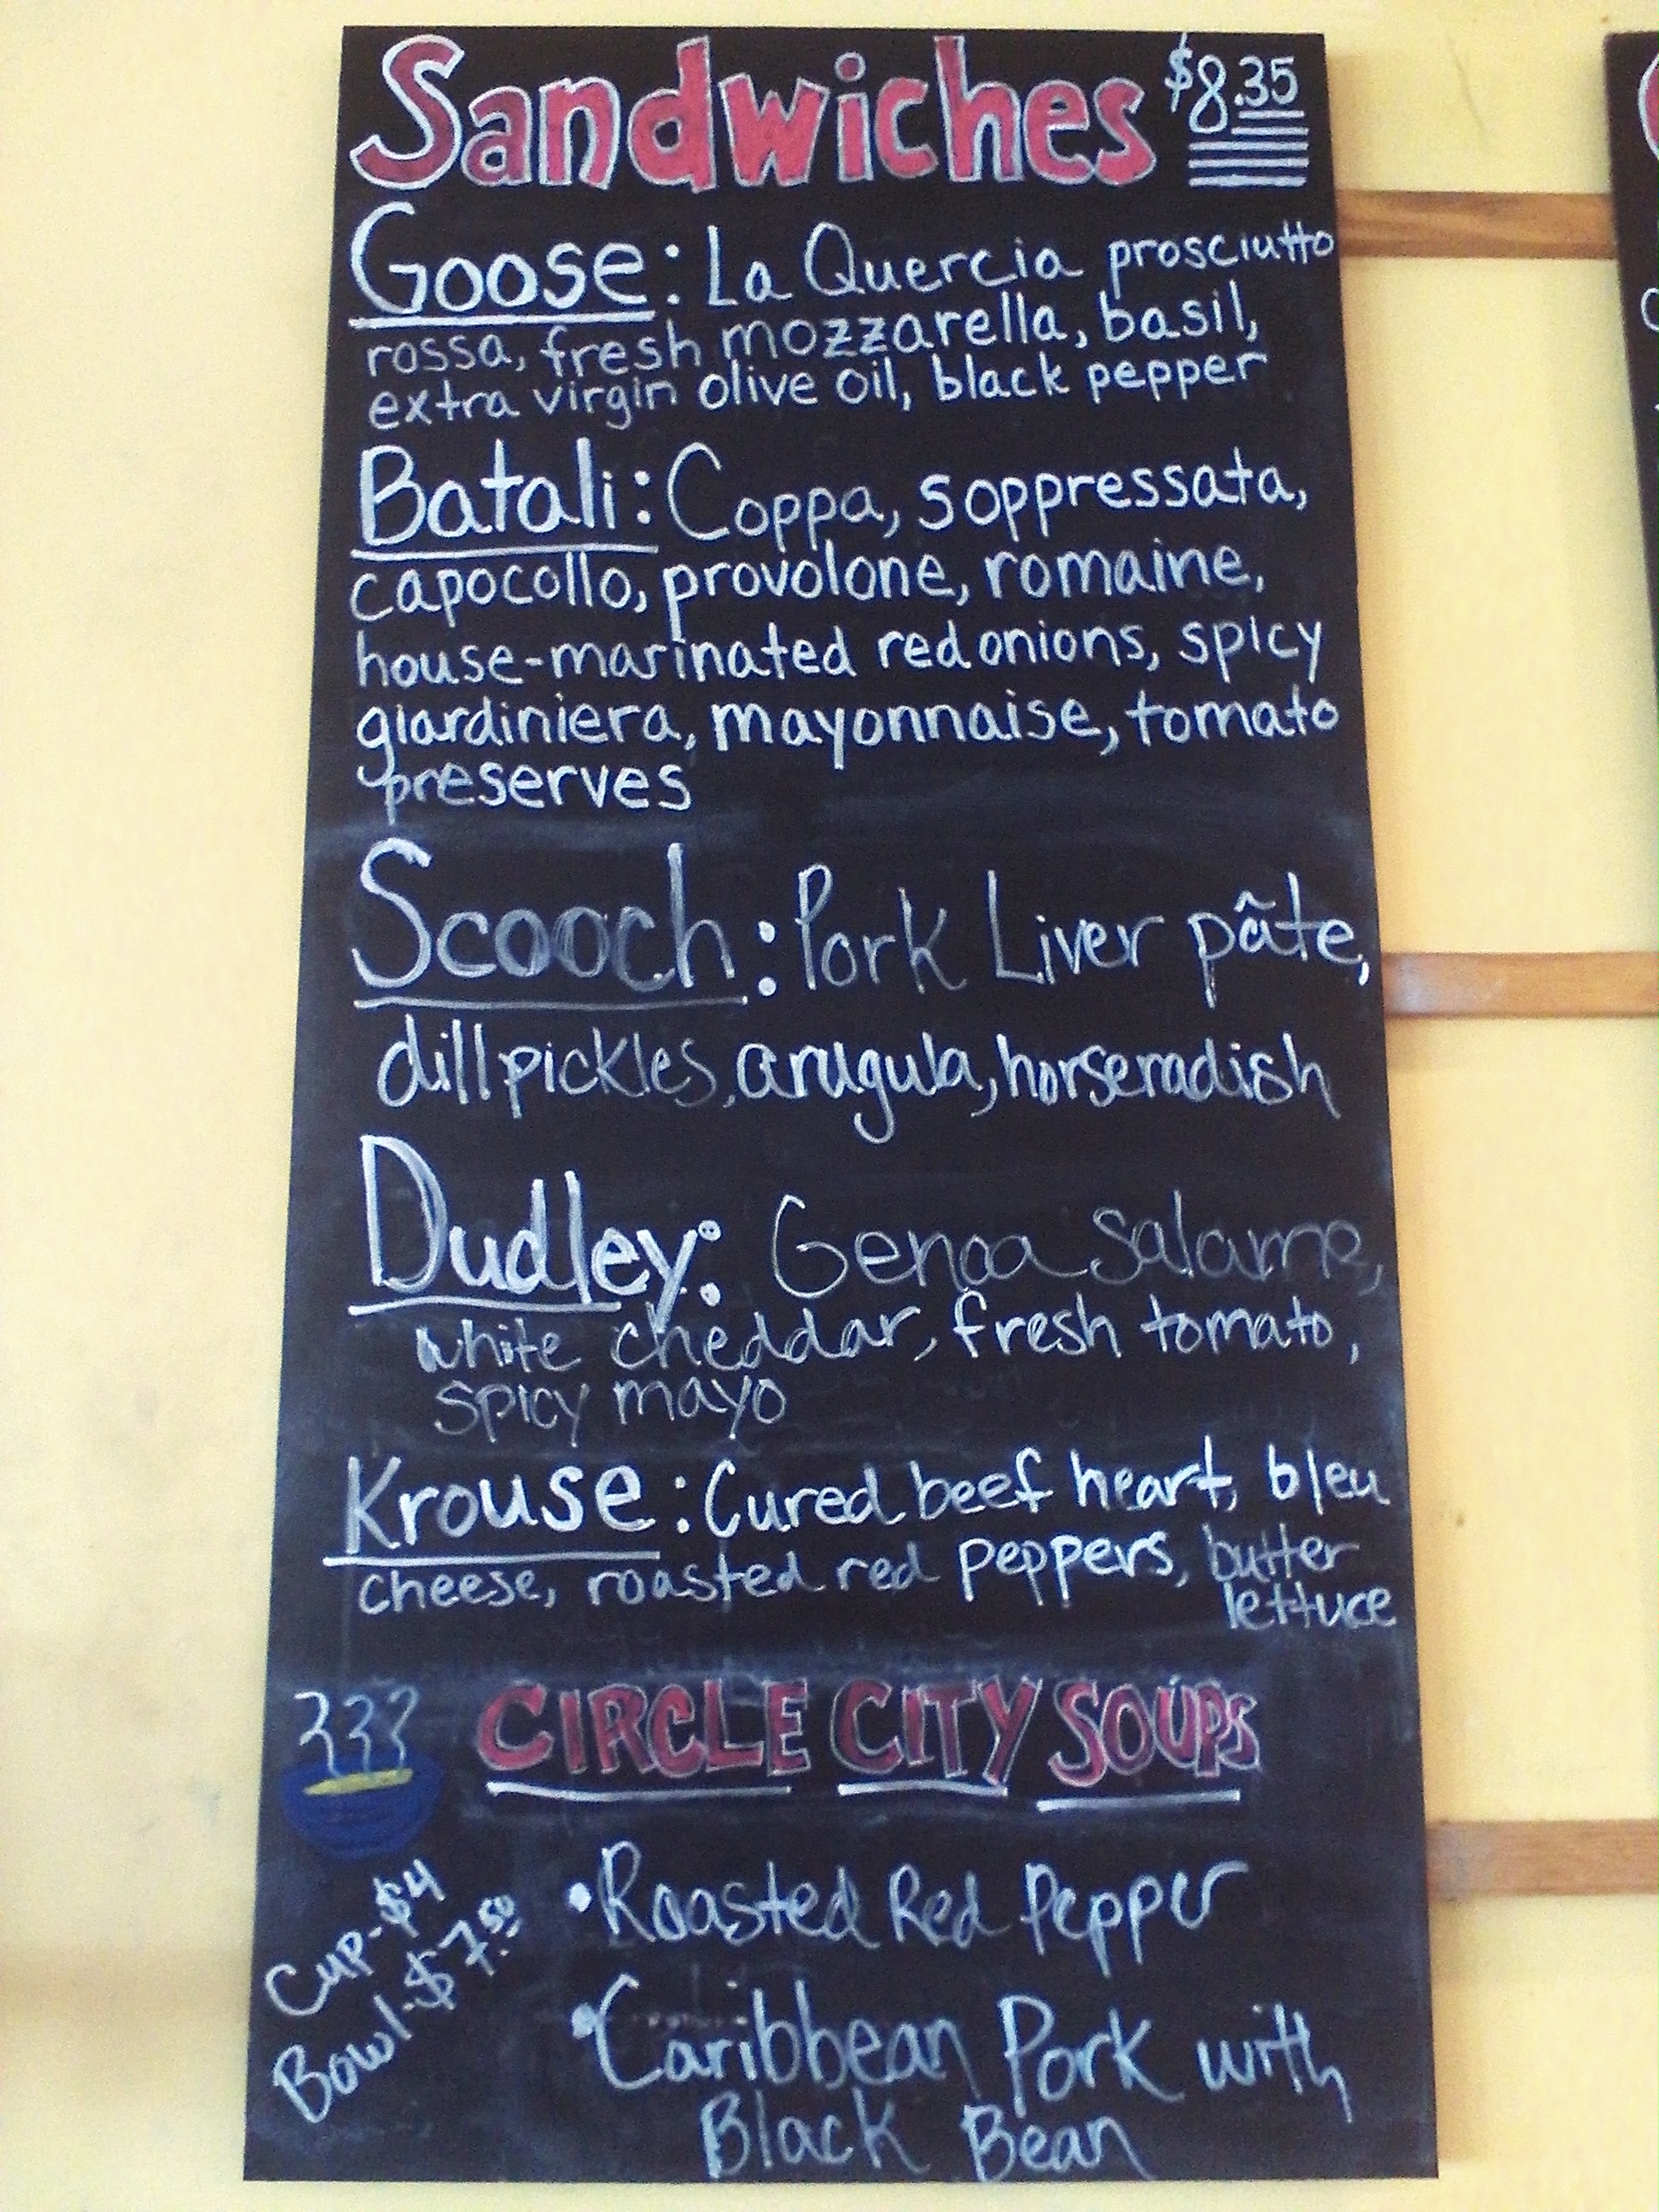 Sandwiches $8.35
Goose: La Quercia prosciutto
rossa, fresh mozzarella, basil,
extra virgin olive oil, black pepper
Batali: Coppa, soppressata,
capocollo, provolone, romaine,
house-marinated red onions, spicy
giardiniera, mayonnaise, tomato
preserves
Scooch: Pork Liver pâte,
dill pickles, arugula, horseradish
Dudley: Genoa Salame,
white cheddar, fresh tomato,
spicy mayo
Krouse: Cured beef heart, bleu
cheese, roasted red peppers, butter
lettuce
CIRCLE CITY SOUPS
Cup-$4
Bowl-$7.50
•Roasted Red Pepper
•Caribbean Pork with
Black Bean